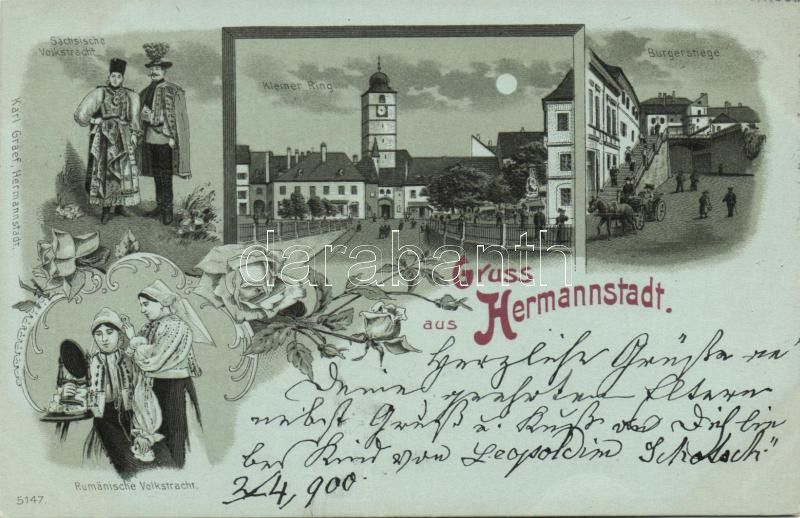 Sächsische
Volkstracht.
Kleiner Ring.
Burgerstiege
Karl Graef, Hermannstadt.
darabanth
Gruss
aus Hermannstadt.
Herzliche Grüße an
Deine geehrten Eltern
nebst Gruß u. Kuß an Dich lie
bes Kind von Leopoldin Schotsch"
3/4, 900.
Rumänische Volkstracht.
5147.